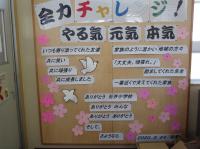 全力チャレンジ!
やる気 元気 本気
いつも寄り添ってくれた友達
共に笑い
共に頑張り
共に成長しました
家族のように温かい地域の方々
「大丈夫、頑張れ。」
励ましてくれた先生
一番近くで支えてくれた家族
ありがとう
ありがとう みんな
ありがとう ありがとう
そして、
さようなら